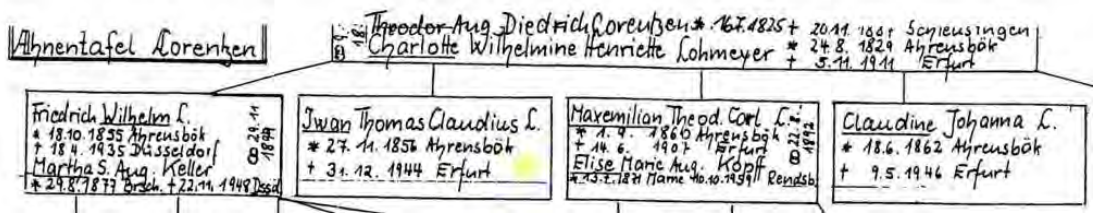 Ahnentafel Lorentzen
Theodor Aug. Diedrich Lorentzen * 16.7.1825 + 20.11. Schleusingen
Charlotte Wilhelmine Henriette Lohmeyer * 24.8.1829 Ahrensbök
+ 5.11.1911 Erfurt
Friedrich Wilhelm L.
* 18.10.1855 Ahrensbök
+ 18.4.1935 Düsseldorf
Martha S. Aug. Keller
* 29.8.1877 Brsch. + 22.11.1948 Dssd.
∞ 29.11
1899
Iwan Thomas Claudius L.
* 27.11.1856 Ahrensbök
+ 31.12.1944 Erfurt
Maxemilian Theod. Carl L.
* 1.9.1860 Ahrensbök
+ 14.6.1907 Erfurt
Elise Marie Aug. Kopff
Marne Rendsb.
∞ 22.8.
1892
Claudine Johanna L.
* 18.6.1862 Ahrensbök
+ 9.5.1946 Erfurt